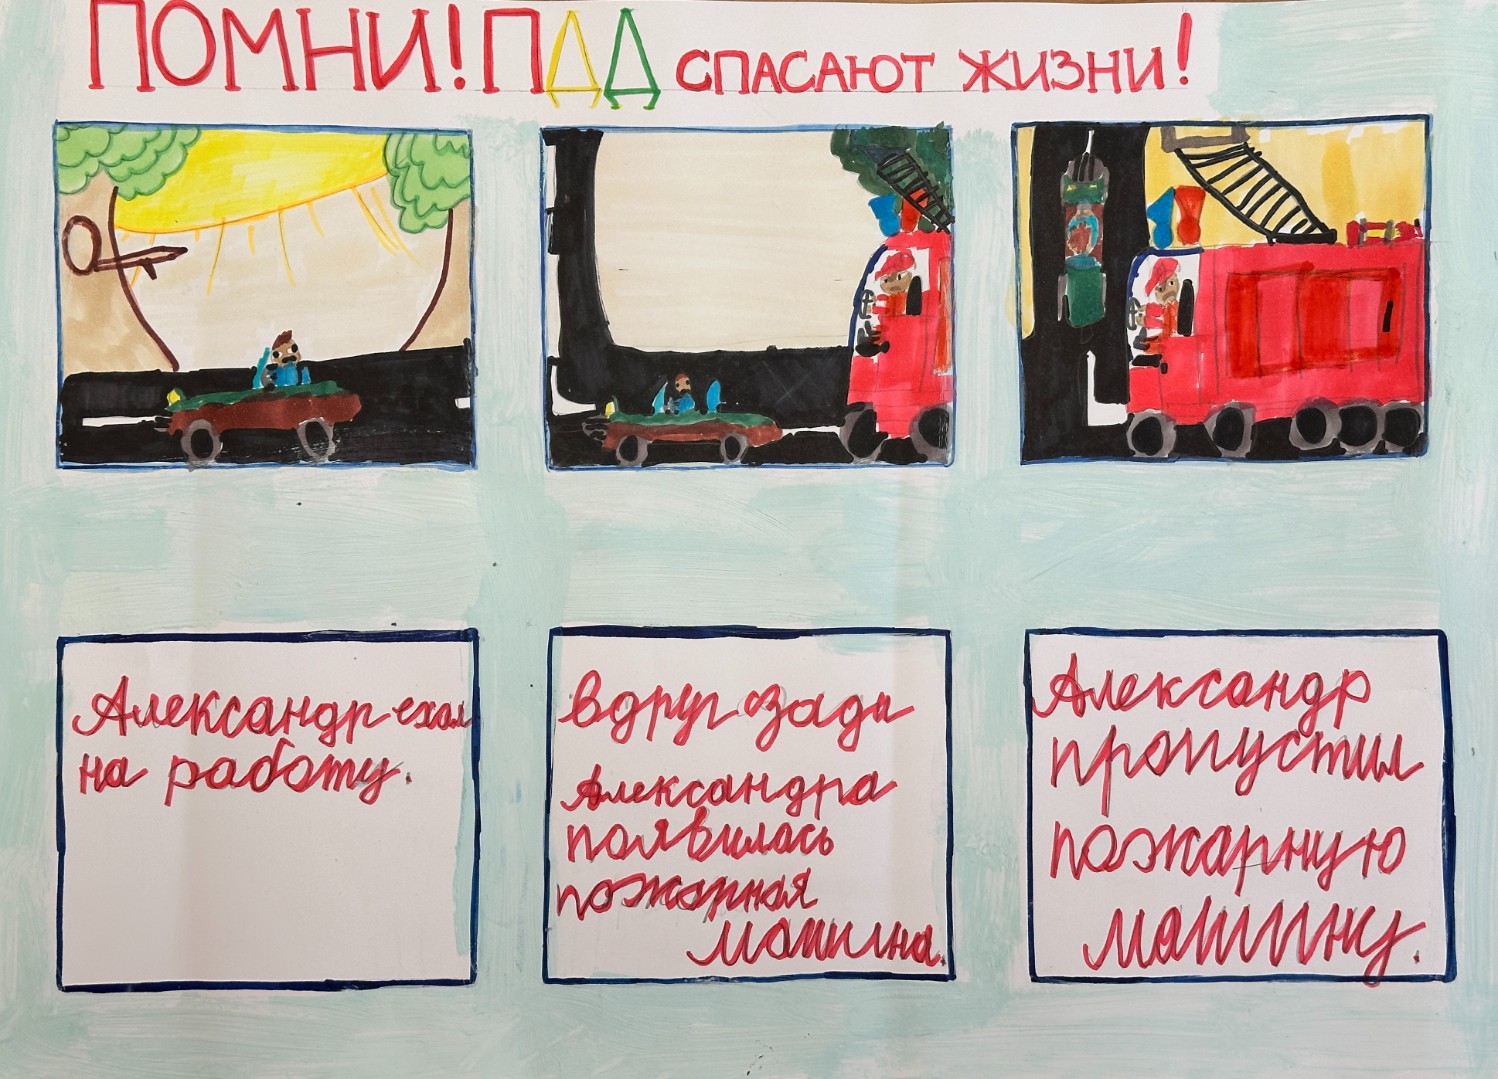 ПОМНИ! ПДД СПАСАЮТ ЖИЗНИ!
Александр ехал
на работу.
Вдруг сзади
Александра
появилась
пожарная
машина.
Александр
пропустил
пожарную
машину.